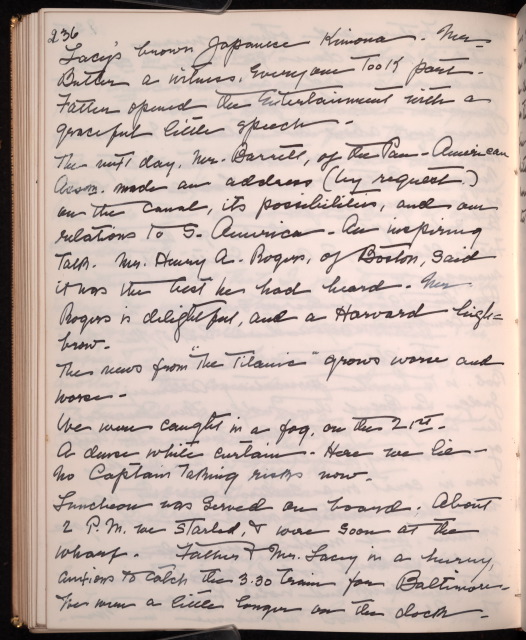 236
Lacy's brown Japanese Kimona. Mr.
Butler a witness. Everyone took part.
Father opened the Entertainment with a
graceful little speech -
The next day, Mr. Barrett, of the Pan-American
Assn. made an address (by request.)
on the Canal, its possibilities, and our
relations to S. America - An inspiring
talk. Mr. Henry A. Rogers, of Boston, said
it was the best he had heard - Mr.
Rogers is delightful, and a Harvard high=
brow.
The news from "the Titanic" grows worse and
worse -
We were caught in a fog, on the 21st -
A dense white curtain - Here we lie -
No Captain taking risks now.
Luncheon was served on board. About
2 P.M. we started, & were soon at the
wharf. Father & Mr. Lacey in a hurry,
anxious to catch the 3.30 train for Baltimore
We were a little longer on the dock -